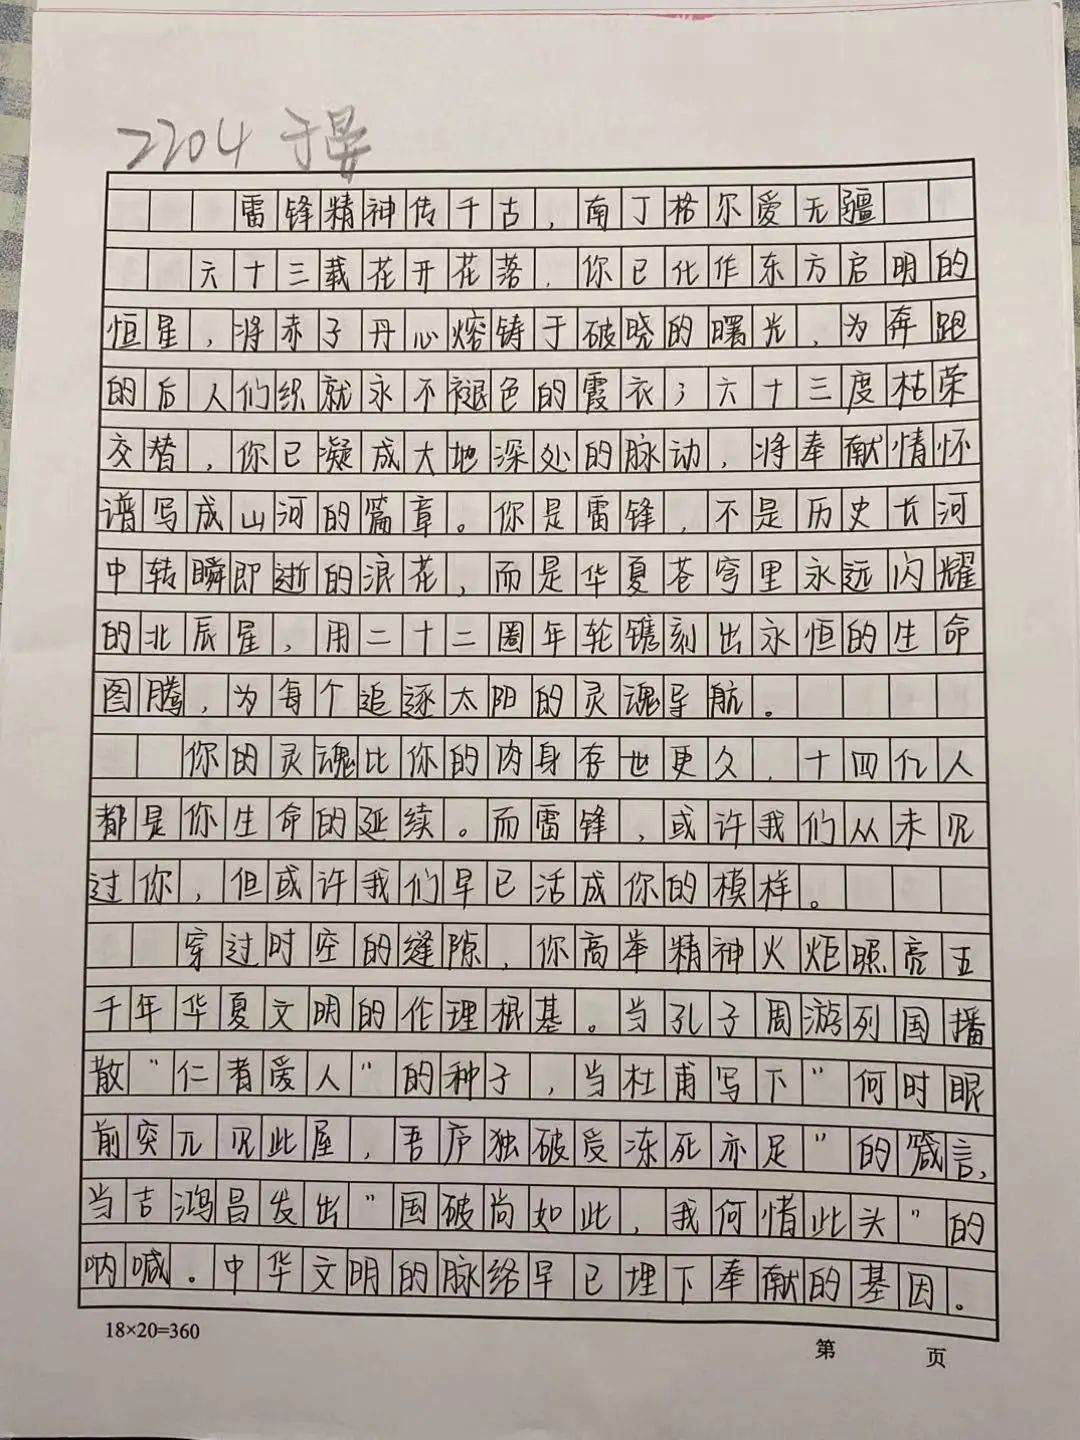 2204 于晏
雷锋精神传千古，南丁格尔爱无疆
六十三载花开花落，你已化作东方启明的
恒星，将赤子丹心熔铸于破晓的曙光，为奔跑
的后人们织就永不褪色的霞衣；六十三度枯荣
交替，你已凝成大地深处的脉动，将奉献情怀
谱写成山河的篇章。你是雷锋，不是历史长河
中转瞬即逝的浪花，而是华夏苍穹里永远闪耀
的北辰星，用二十二圈年轮镌刻出永恒的生命
图腾，为每个追逐太阳的灵魂导航。
你的灵魂比你的肉身存世更久，十四亿人
都是你生命的延续。而雷锋，或许我们从未见
过你，但或许我们早已活成你的模样。
穿过时空的缝隙，你高举精神火炬照亮五
千年华夏文明的伦理根基。当孔子周游列国播
散“仁者爱人”的种子，当杜甫写下“何时眼
前突兀见此屋，吾庐独破受冻死亦足”的箴言，
当吉鸿昌发出“国破尚如此，我何惜此头”的
呐喊。中华文明的脉络早已埋下奉献的基因。
18×20=360
第 页